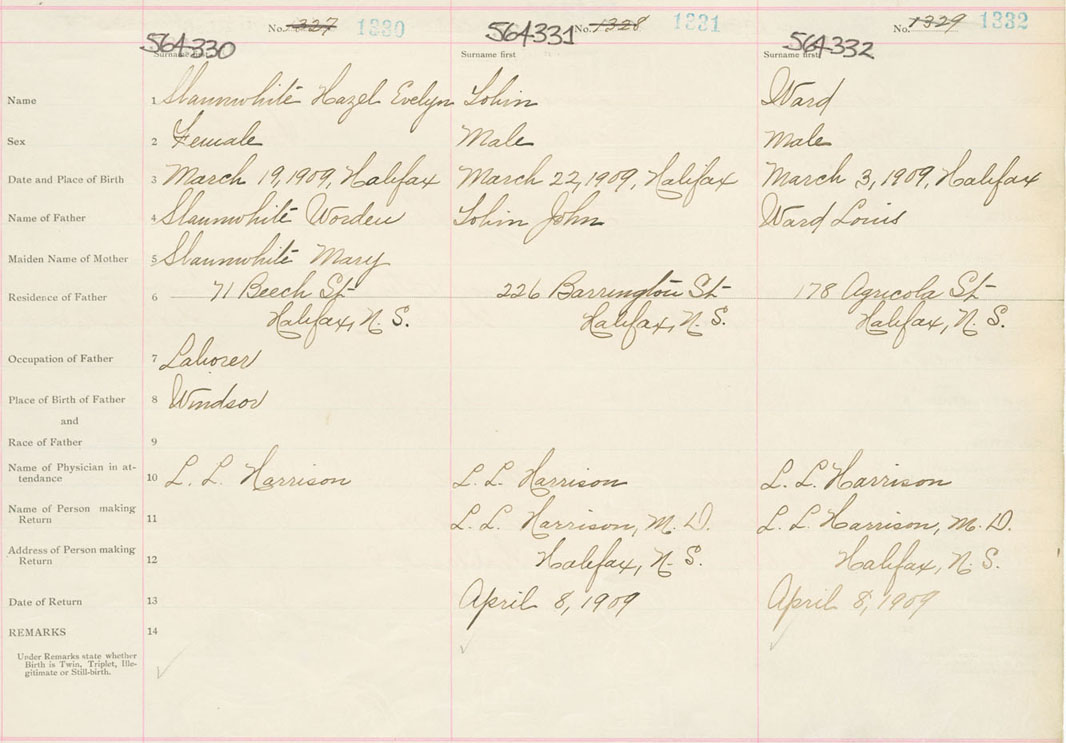 No. 1327 1330
No. 1328 1331
No. 1329 1332
564330
564331
564332
Surname first
Surname first
Surname first
Name 1 Slaunwhite Hazel Evelyn Tobin Ward
Sex 2 Female Male Male
Date and Place of Birth 3 March 19, 1909, Halifax March 22, 1909, Halifax March 3, 1909, Halifax
Name of Father 4 Slaunwhite Worden Tobin John Ward Louis
Maiden Name of Mother 5 Slaunwhite Mary
Residence of Father 6 71 Beech St 226 Barrington St 178 Agricola St
Halifax, N. S. Halifax, N. S. Halifax, N. S.
Occupation of Father 7 Laborer
Place of Birth of Father 8 Windsor
and
Race of Father 9
Name of Physician in at-
tendance 10 L. L. Harrison L. L. Harrison L. L. Harrison
Name of Person making
Return 11 L. L. Harrison, M. D. L. L. Harrison, M. D.
Address of Person making
Return 12 Halifax, N. S. Halifax, N. S.
Date of Return 13 April 8, 1909 April 8, 1909
REMARKS 14
Under Remarks state whether
Birth is Twin, Triplet, Ille-
gitimate or Still-birth.